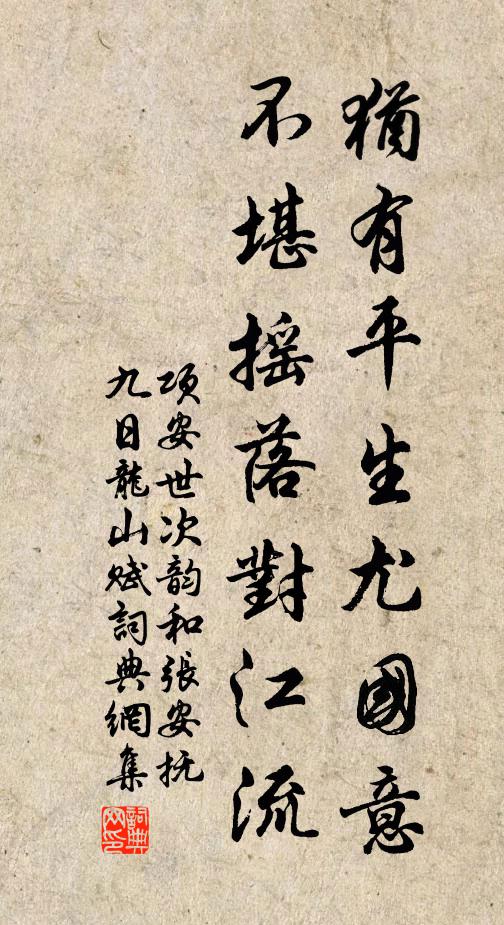 猶有平生尤國意
不堪摇落對江流
项安世次韵和張安抚
九日龍山赋詞典網集
詞典
网印